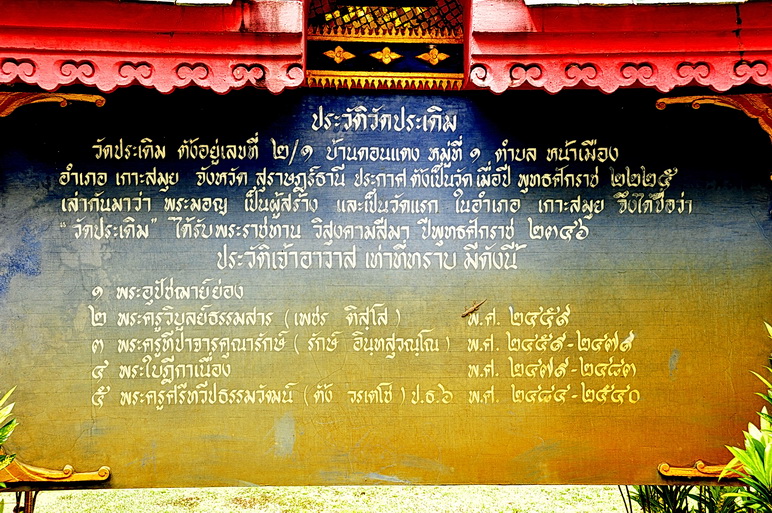 ประวัติวัดประเดิม
วัดประเดิม ตั้งอยู่เลขที่ ๒/๑ บ้านดอนแตง หมู่ที่ ๑ ตำบล หน้าเมือง
อำเภอ เกาะสมุย จังหวัด สุราษฎร์ธานี ประกาศตั้งเป็นวัด เมื่อปี พุทธศักราช ๒๒๒๕
เล่ากันมาว่า พระมอญ เป็นผู้สร้าง และเป็นวัดแรก ในอำเภอ เกาะสมุย จึงได้ชื่อว่า
“วัดประเดิม” ได้รับพระราชทาน วิสุงคามสีมา ปีพุทธศักราช ๒๓๔๖
ประวัติเจ้าอาวาส เท่าที่ทราบ มีดังนี้
๑ พระอุปัชฌาย์ย่อง
๒ พระครูวิบูลย์ธรรมสาร (เพชร ติสฺโส) พ.ศ. ๒๔๕๙
๓ พระครูทีปาจารคุณารักษ์ (รักษ์ อินฺทสุวณฺโณ) พ.ศ. ๒๔๕๙-๒๔๗๙
๔ พระใบฎีกาเนื่อง พ.ศ. ๒๔๗๙-๒๔๘๓
๕ พระครูศรีทวีปธรรมวัฒน์ (ตั้ง วรเตโช) ป.ธ.๖ พ.ศ. ๒๔๘๔-๒๕๔๐